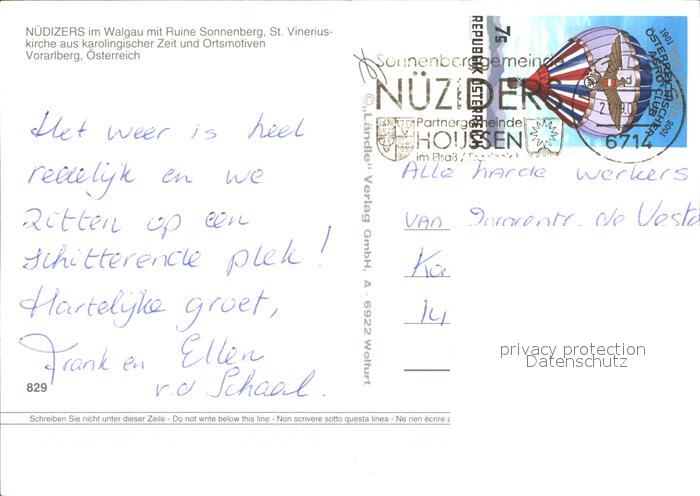 NÜDIZERS im Walgau mit Ruine Sonnenberg, St. Vinerius-
kirche aus karolingischer Zeit und Ortsmotiven
Vorarlberg, Österreich
Het weer is heel
redelijk en we
zitten op een
schitterende plek!
Hartelijke groet,
Frank en Ellen
v.d Schaal.
829
Schreiben Sie nicht unter dieser Zeile - Do not write below this line - Non scrivere sotto questa linea - Ne rien écrire a
© „Ländle" Verlag GmbH, A - 6922 Wolfurt
Sonnenberggemeinde
NÜZIDERS
Partnergemeinde
HOUSSEN
im Elsaß /
7S
REPUBLIK ÖSTERREICH
1901 2001
ÖSTERREICHISCHER
AERO-CLUB
6714
Alle harde werkers
van de Vesta
Ka
privacy protection
Datenschutz